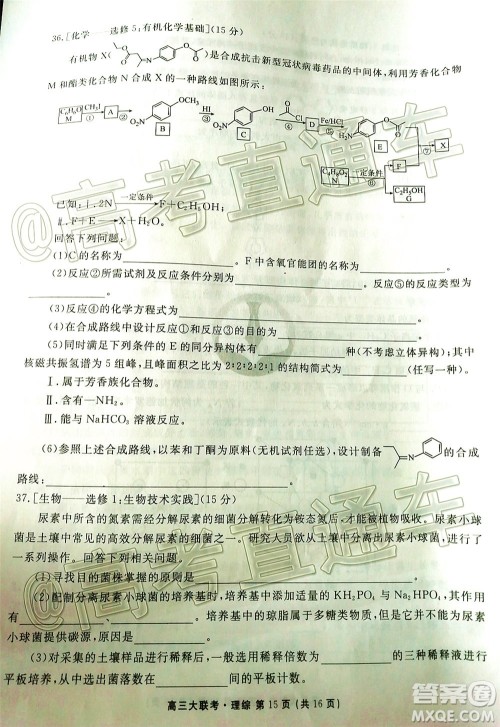 36.[化学——选修5:有机化学基础](15分)
有机物X( O N O )是合成抗击新型冠状病毒药品的中间体,利用芳香化合物
M和酯类化合物N合成X的一种路线如图所示:
C₆H₆O [CH₃I] ① A ② O₂N OCH₃ B HI ③ O₂N OH C Cl ④ D Fe/HCl ⑤ H₂N E
⑦ X
C₄H₈O₂ N 一定条件 ⑥ F
C₂H₅OH G
已知:ⅰ.2N 一定条件 F+C₂H₅OH
ⅱ.F+E→X+H₂O
回答下列问题:
(1)C的名称为 。F中含氧官能团的名称为 。
(2)反应②所需试剂及反应条件分别为 ,反应⑤的反应类型为
。
(3)反应④的化学方程式为 。
(4)在合成路线中设计反应①和反应③的目的为 。
(5)同时满足下列条件的E的同分异构体有 种(不考虑立体异构);其中
核磁共振氢谱为5组峰,且峰面积之比为2∶2∶2∶2∶1的结构简式为
(任写一种)。
Ⅰ.属于芳香族化合物。
Ⅱ.含有—NH₂。
Ⅲ.能与NaHCO₃溶液反应。
(6)参照上述合成路线,以苯和丁酮为原料(无机试剂任选),设计制备 N 的合成
路线: 。
37.[生物——选修1:生物技术实践](15分)
尿素中所含的氮素需经分解尿素的细菌分解转化为铵态氮后,才能被植物吸收。尿素小球
菌是土壤中常见的高效分解尿素的细菌之一。研究人员欲从土壤中分离出尿素小球菌,进行了
一系列操作。回答下列问题:
(1)寻找目的菌株掌握的原则是 。
(2)配制分离尿素小球菌的培养基需添加一定量的KH₂PO₄与Na₂HPO₄,其作用有
。培养基中的琼脂属于多糖类物质,但不能为尿素
小球菌提供碳源,原因是 。
(3)对采集的土壤样品进行稀释后,一般选用稀释倍数为 的三种稀释液进行
平板培养,从中选出
高三大联考·理综 第15页(共16页)
@高考直通车
@高考直通车